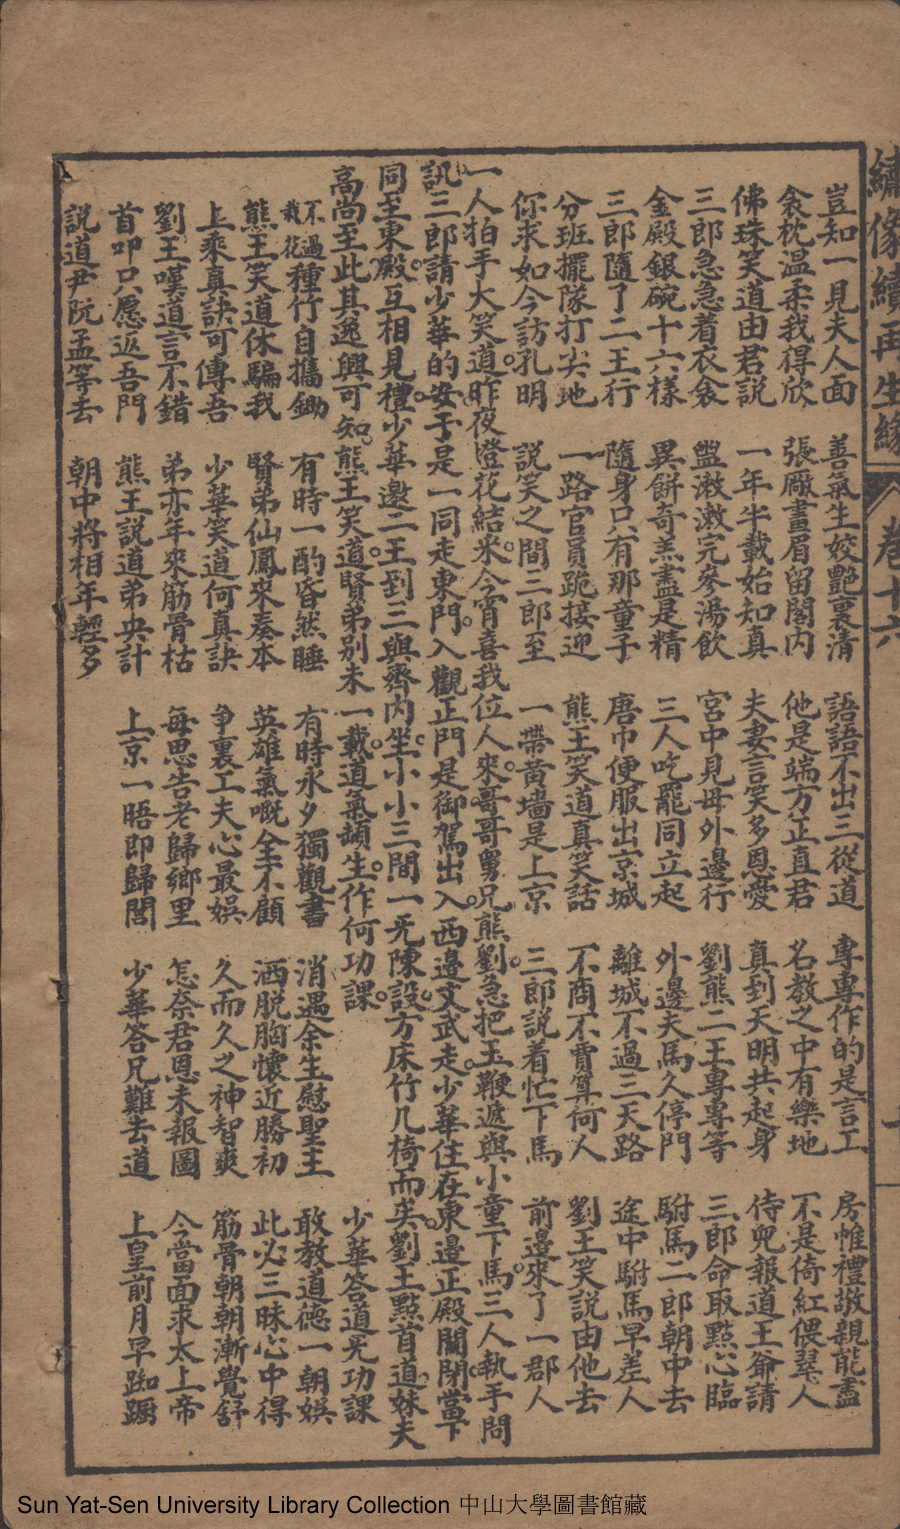 繡像續再生緣 卷十六
豈知一見夫人面 善氣生姣艷裏清 語語不出三從道 專專作的是言工 房帷禮敬親能盡
衾枕温柔我得欣 張廠畫眉留閣内 他是端方正直君 名教之中有樂地 不是倚紅偎翠人
佛珠笑道由君説 一年半載始知真 夫妻言笑多恩愛 真到天明共起身 侍兒報道王爺請
三郎急急着衣衾 盥漱漱完參湯飲 宮中見母外邊行 劉熊二王專專等 三郎命取點心臨
金殿銀碗十六樣 異餅奇羔盡是精 三人吃罷同立起 外邊夫馬久停門 駙馬二郎朝中去
三郎隨了二王行 隨身只有那童子 唐巾便服出京城 離城不過三天路 途中駙馬早差人
分班擺隊打尖地 一路官員跪接迎 熊王笑道真笑話 不商不賈算何人 劉王笑説由他去
你求如今訪孔明 説笑之間三郎至 一帶黄墻是上京 三郎説着忙下馬 前邊來了一郡人
一人拍手大笑道昨夜燈花結米今宵喜我位人來哥哥舅兄熊劉急把玉鞭遞與小童下馬三人執手問
訊三郎請少華的安于是一同走東門入觀正門是御駕出入西邊文武走少華住在東邊正殿關閉當下
同至東殿互相見禮少華邀二王到三與齋内坐小小三間一旡陳設方床竹几椅而矣劉王點首道妹夫
高尚至此其逸興可知熊王笑道賢弟别未一載道氣頓生作何功課 少華答道旡功課
不過栽花種竹自攜鋤 有時一酌昏然睡 有時永夕獨觀書 消遇余生慰聖主 敢教道德一朝娛
熊王笑道休騙我 賢弟仙鳳來奏本 英雄氣嘅全不顧 洒脱胸懷近勝初 此必三昧心中得
上乘真訣可傳吾 少華笑道何真訣 争裏工夫心最娛 久而久之神智爽 筋骨朝朝漸覺舒
劉王嘆道言不錯 弟亦年來筋骨枯 每思告老歸鄉里 怎奈君恩未報圖 今當面求太上帝
首叩只愿返吾門 熊王説道弟央計 上京一晤即歸閭 少華答兄難去道 上皇前月早踟蹰
説道尹阮孟等去 朝中將相年輕多